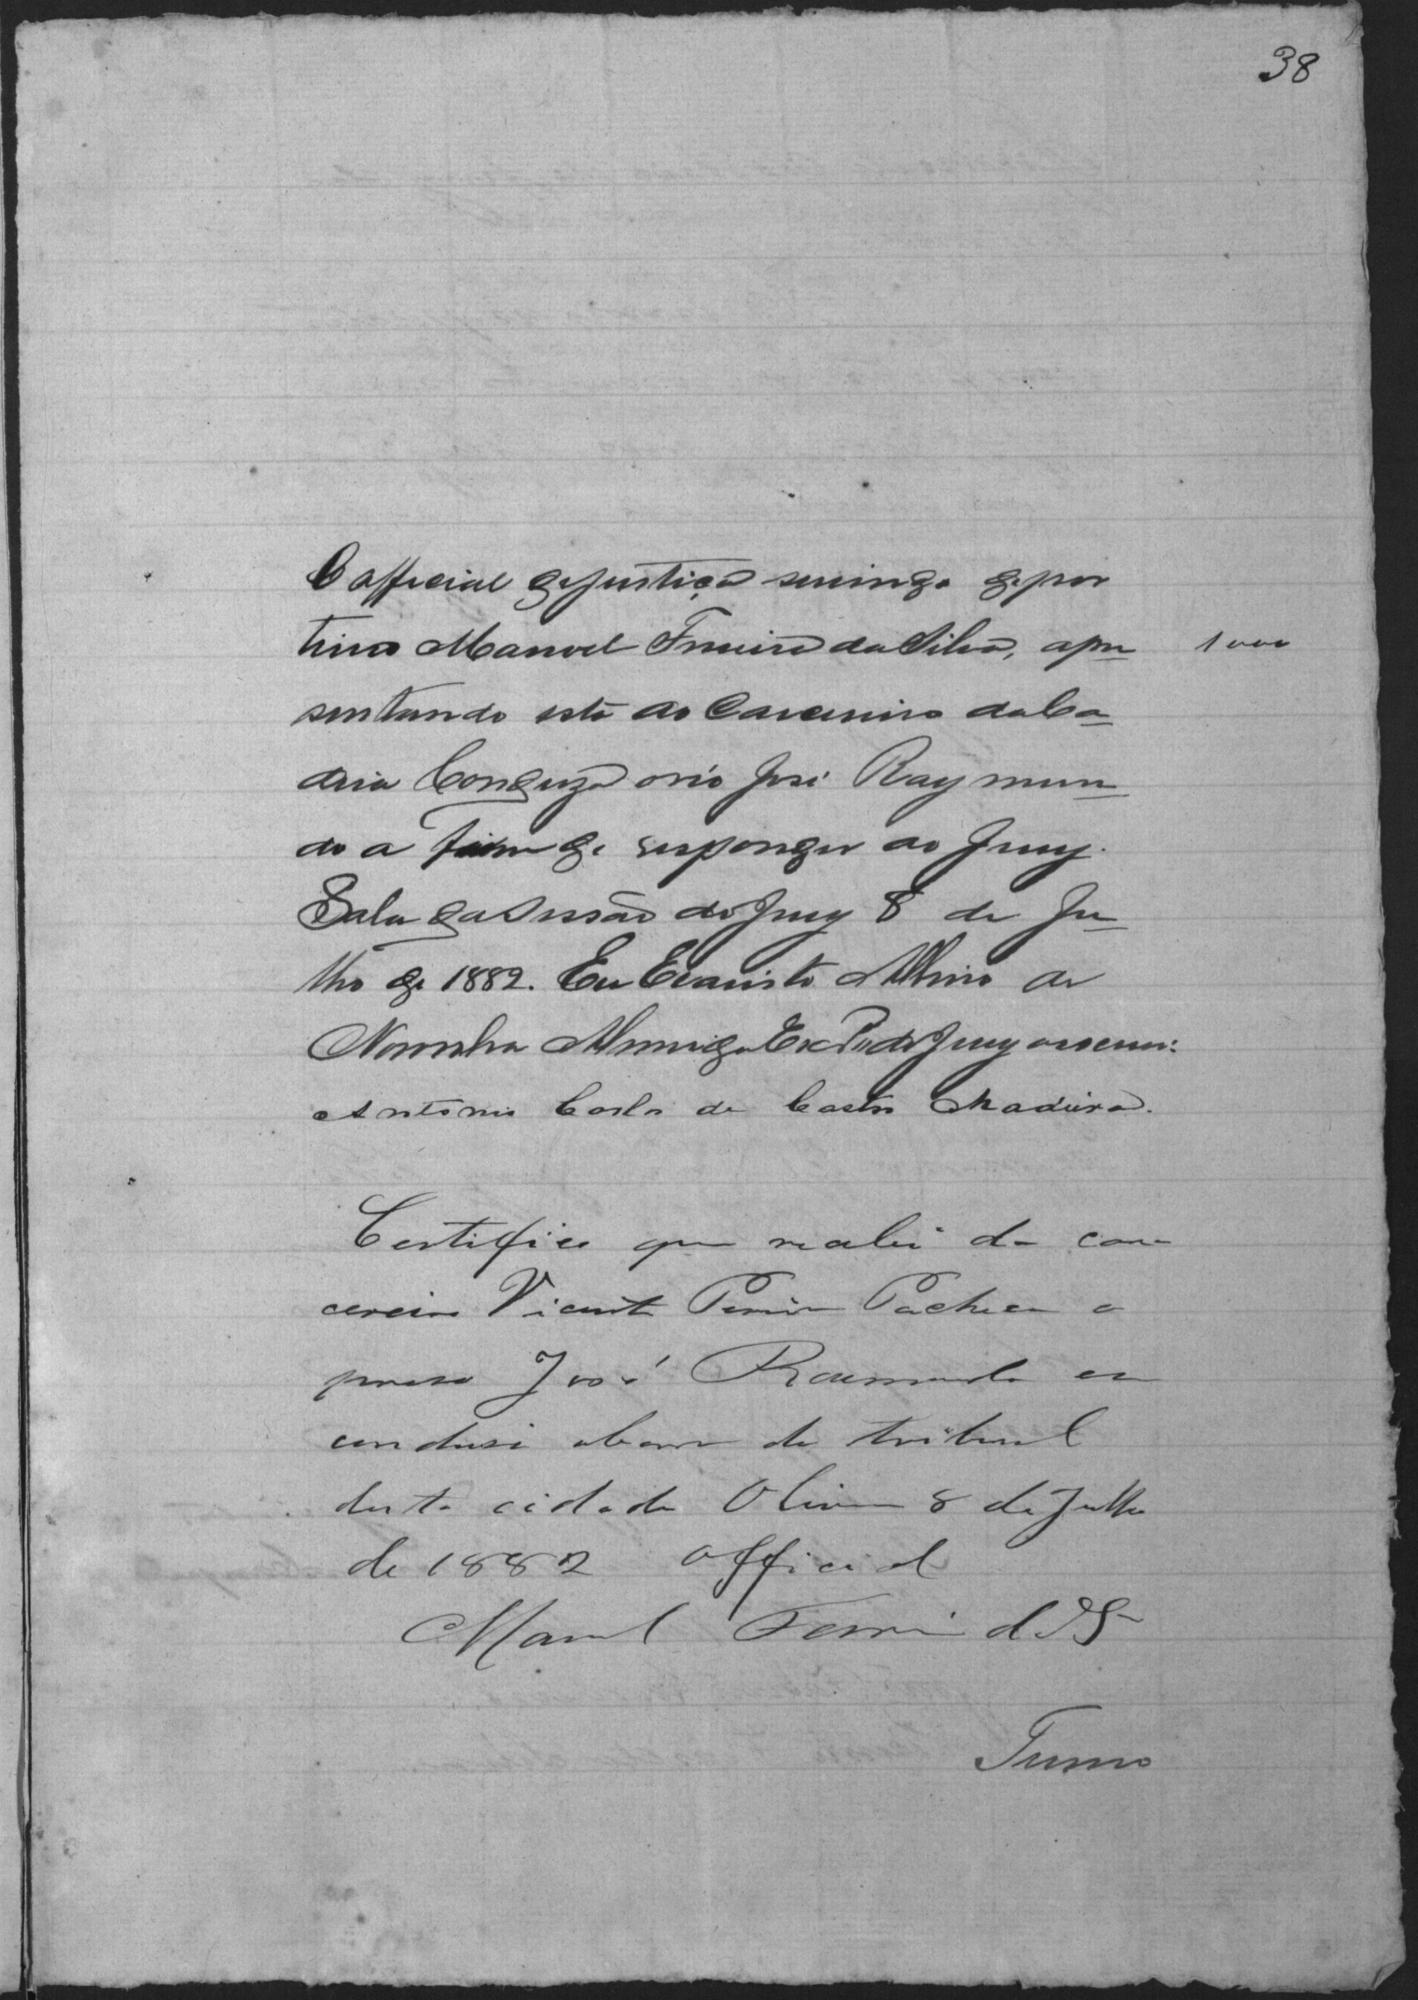 38
O official de justiça servindo de por
teiro Manoel Ferreira da Silva, apre
1000
sentando este ao Carcereiro da Ca
deia Conduza o réo José Raymun
do a fim de responder ao Jury.
Sala da Sessão do Jury 8 de Ju
lho de 1882. Eu Evaristo Albino de
Noronha Almeida Escrivão do Jury o escrevi.
Antonio Carlos de Castro Madeira.
Certifico que recebi do car
cereiro Vicente Pereira Pacheco o
preso José Raimundo e o
condusi a barra do tribunal
desta cidade Oliveira 8 de Julho
de 1882 Official
Manoel Ferreira da S
Termo